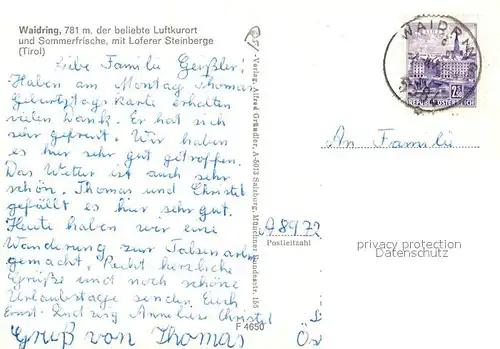 Waidring, 781 m, der beliebte Luftkurort
und Sommerfrische, mit Loferer Steinberge
(Tirol)
Liebe Familie Geißler!
Haben am Montag Thomas
Geburtstagskarte erhalten
vielen Dank. Er hat sich
sehr gefreut. Wir haben
es hier sehr gut getroffen.
Das Wetter ist auch sehr
schön. Thomas und Christel
gefällt es hier sehr gut.
Heute haben wir eine
Wanderung zur
gemacht. Recht herzliche
Grüße und noch schöne
Urlaubstage senden Euch
Ernst-Ludwig Annelies Christel
Gruß von Thomas
F 4650
Verlag Alfred Gründler, A-5013 Salzburg, Münchner Bundesstr. 156
WAIDRING
2
REPUBLIK ÖSTERREICH
An Familie
A 8972
Postleitzahl
privacy protection
Datenschutz
Ös